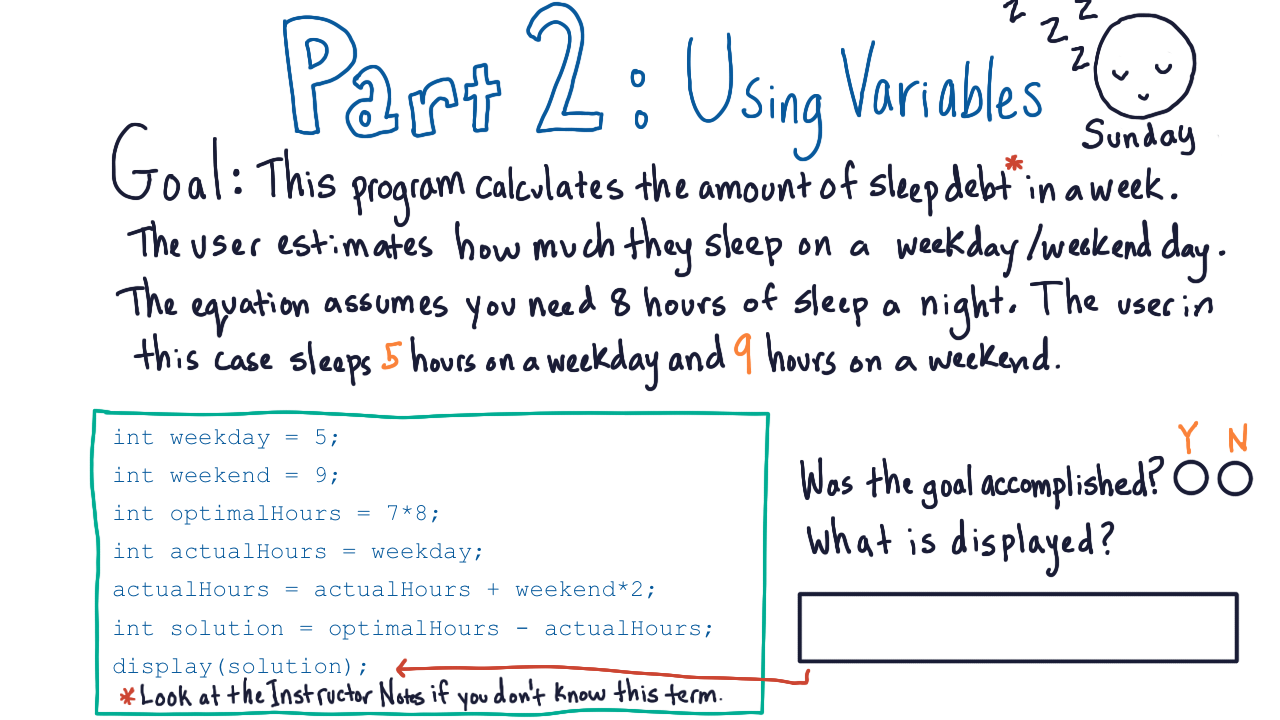 Part 2: Using Variables
z z z z
Sunday
Goal: This program calculates the amount of sleep debt* in a week.
The user estimates how much they sleep on a weekday/weekend day.
The equation assumes you need 8 hours of sleep a night. The user in
this case sleeps 5 hours on a weekday and 9 hours on a weekend.
int weekday = 5;
int weekend = 9;
int optimalHours = 7*8;
int actualHours = weekday;
actualHours = actualHours + weekend*2;
int solution = optimalHours - actualHours;
display(solution);
*Look at the Instructor Notes if you don't know this term.
Y N
Was the goal accomplished?
What is displayed?